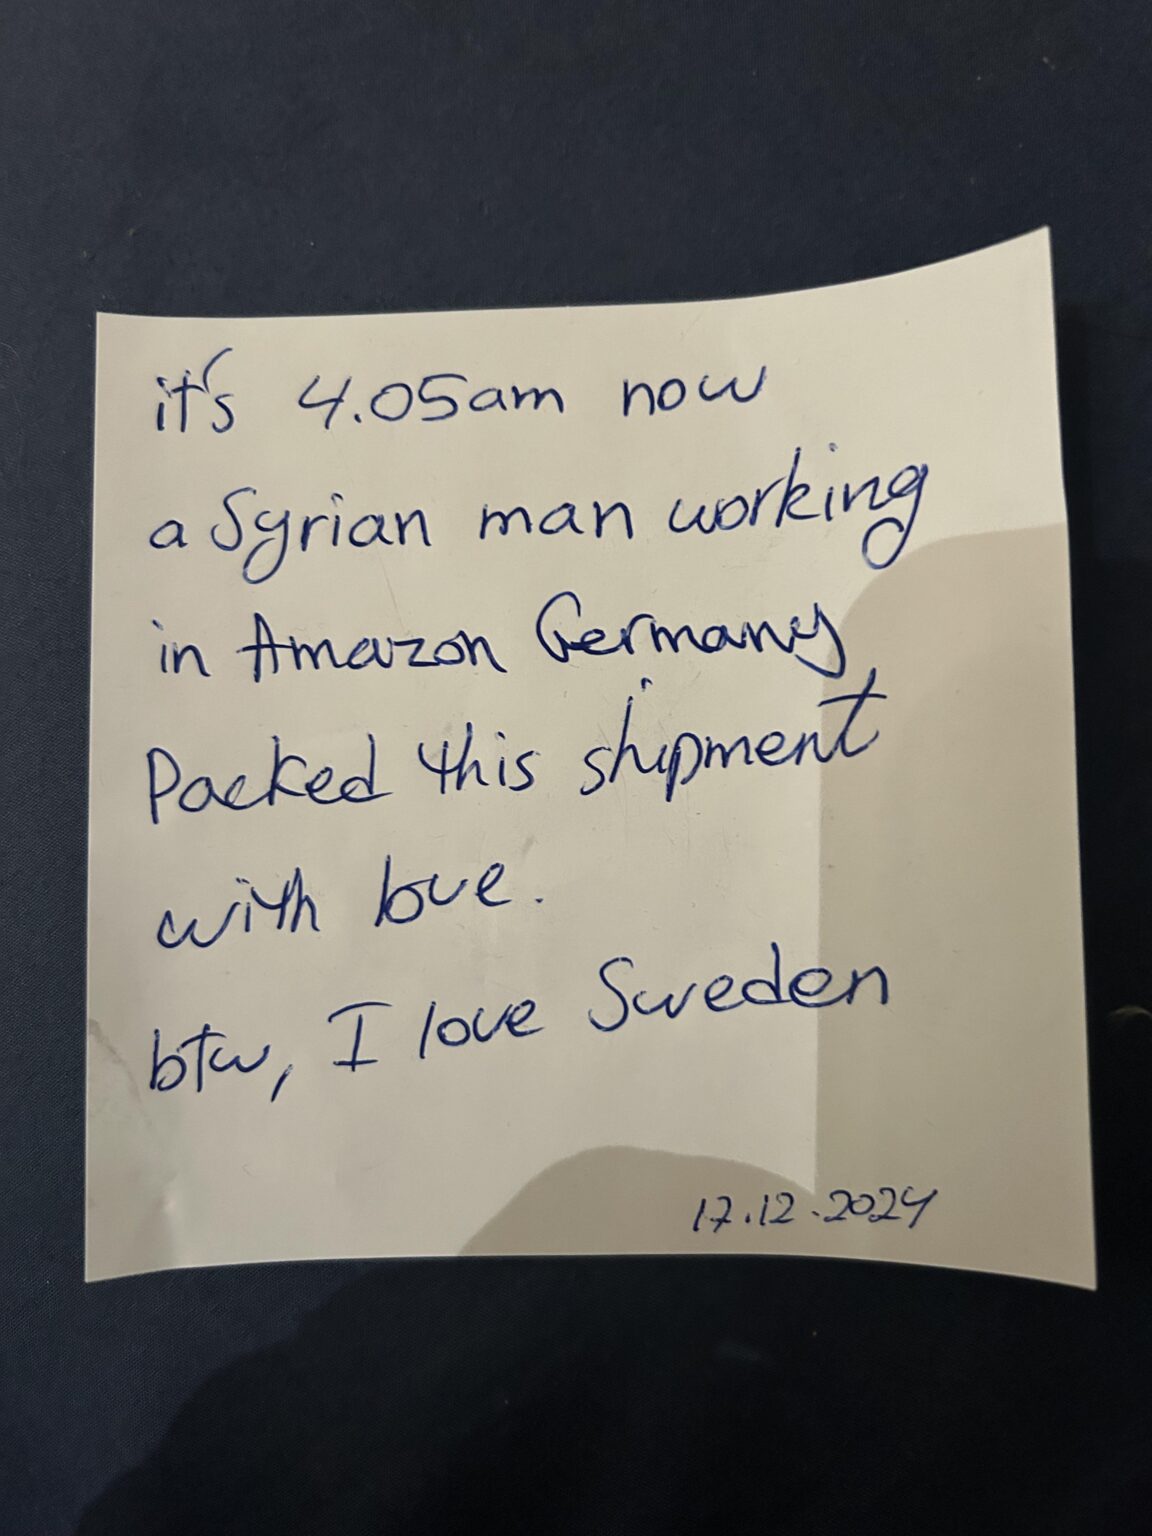 it's 4.05am now
a Syrian man working
in Amazon Germany
Packed this shipment
with love.
btw, I love Sweden
17.12.2024